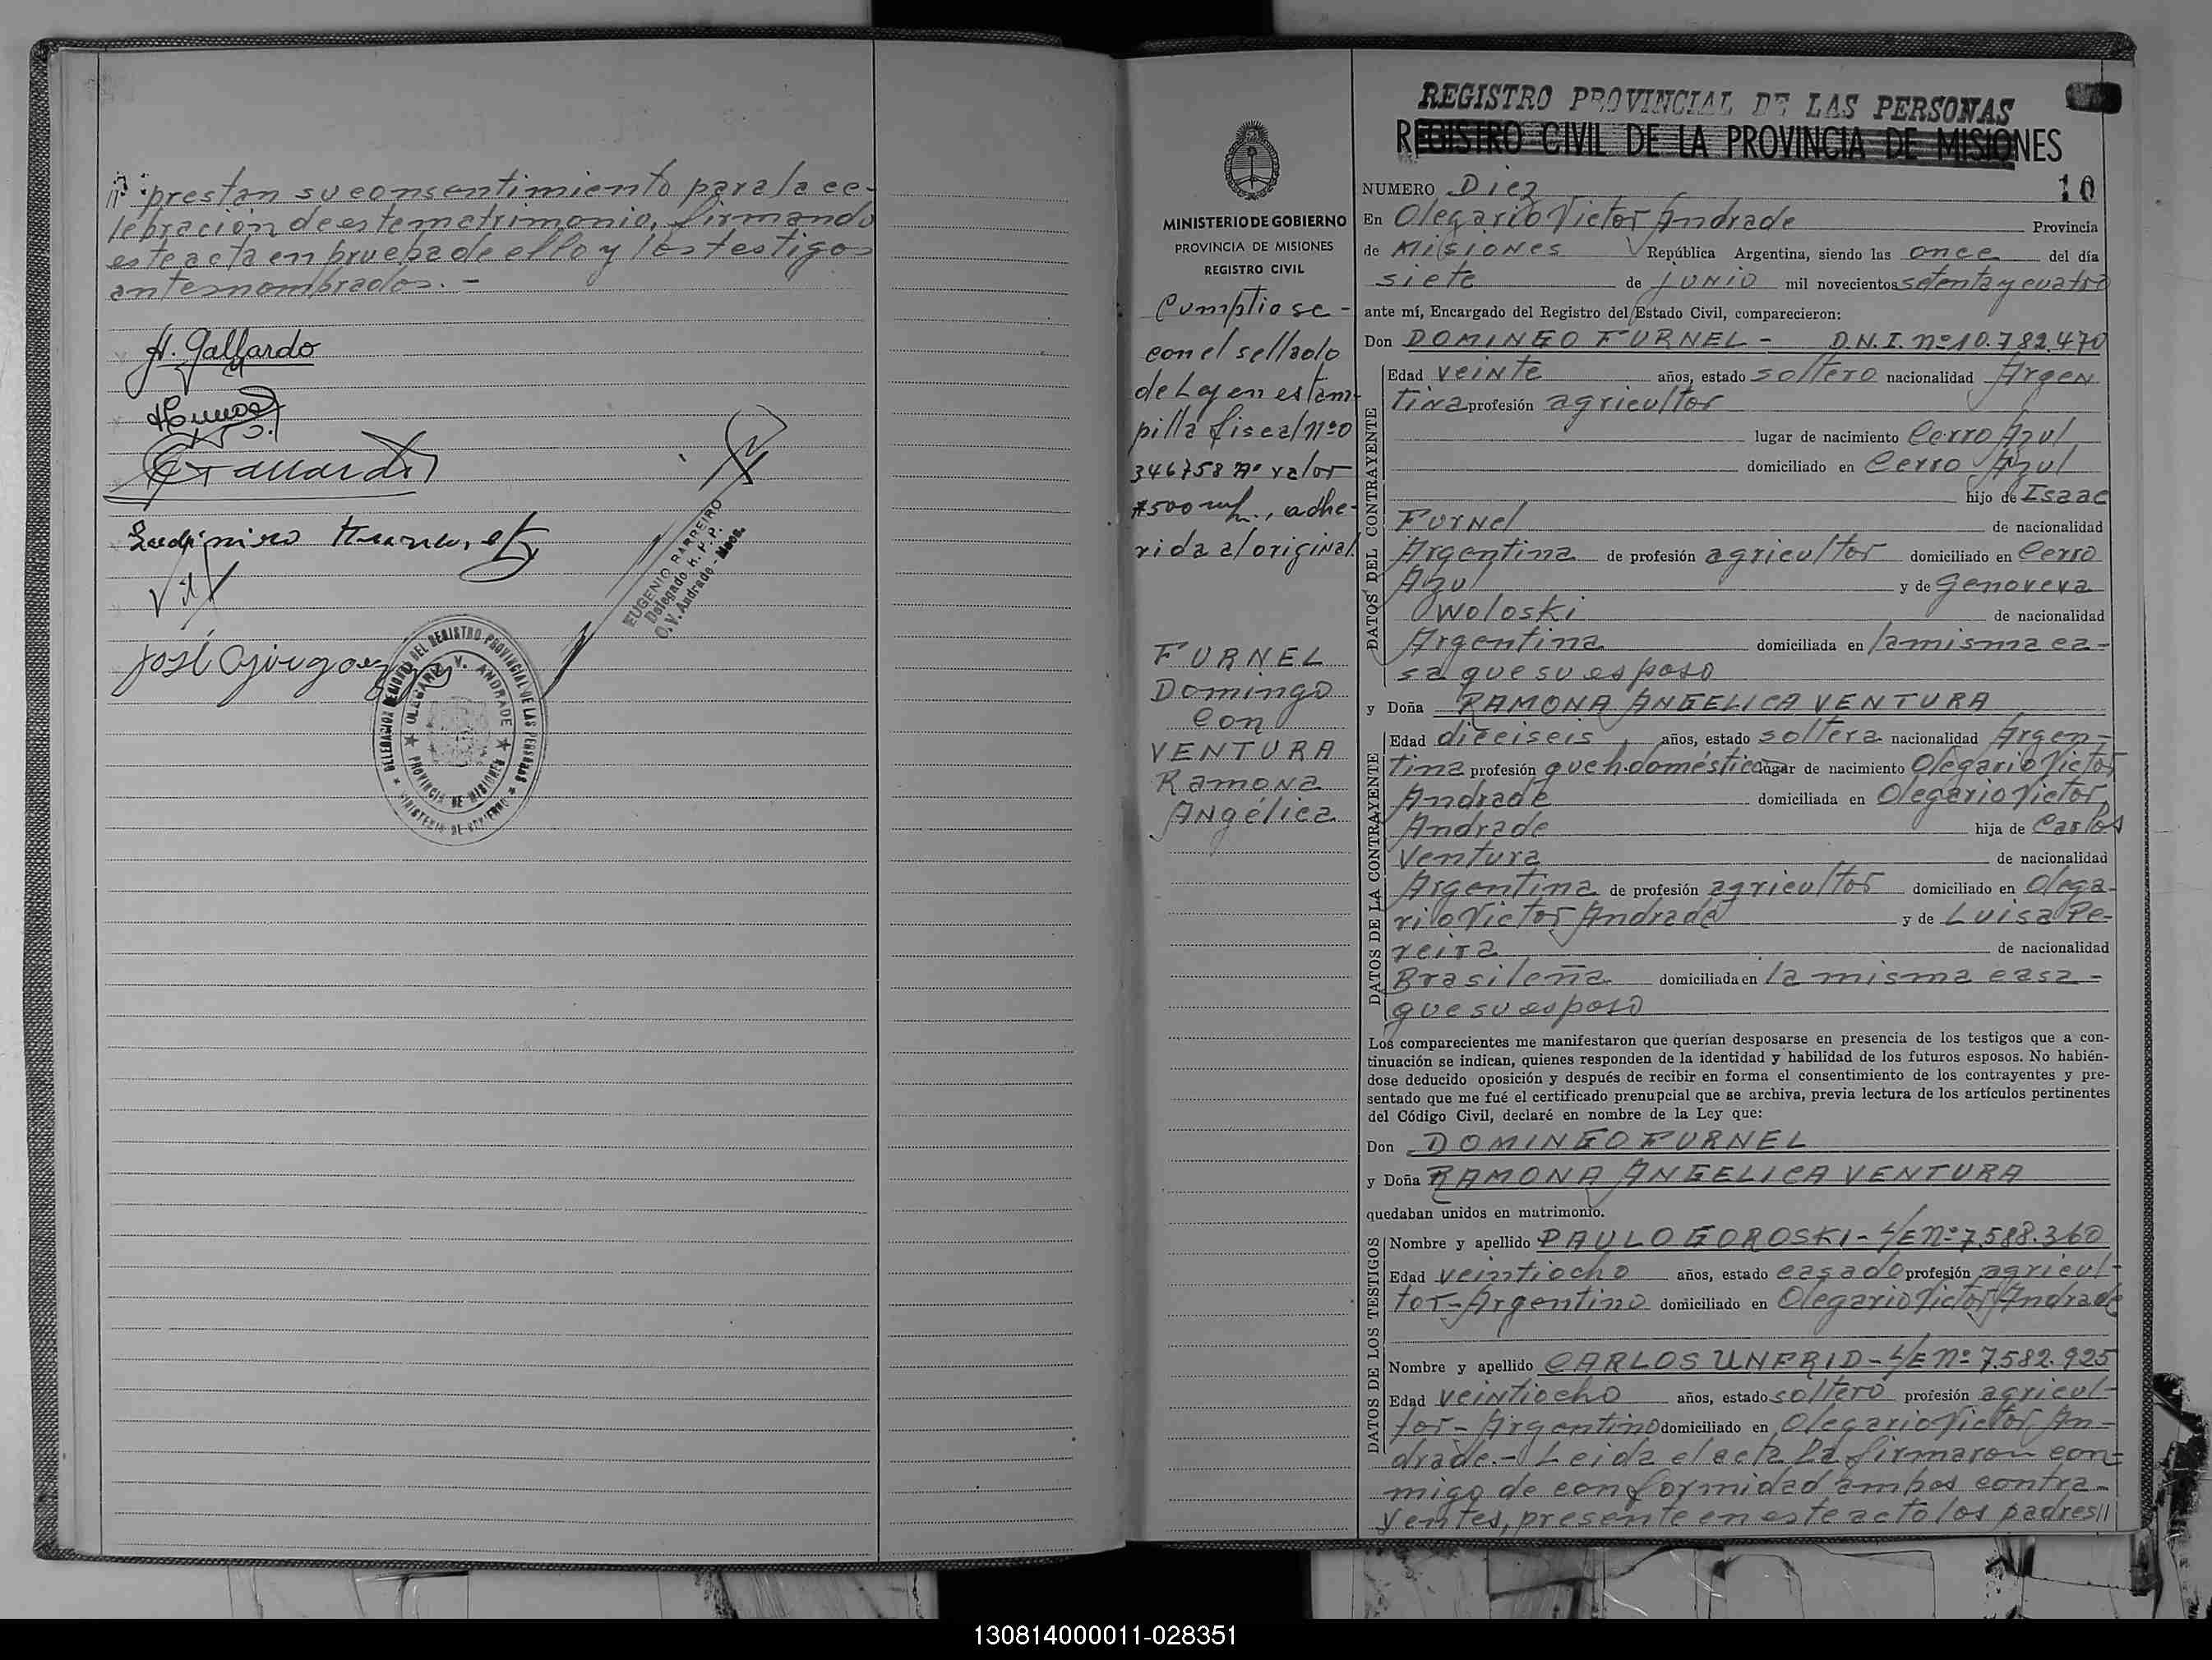 prestan su consentimiento para la ce-
lebración de este matrimonio, firmando
este acta en prueba de ello y los testigos
antes nombrados. -
H. Gallardo
José
EUGENIO BARREIRO
Delegado R.P.P.
O.V. Andrade - Mnes.
DELEGACION DEL REGISTRO PROVINCIAL DE LAS PERSONAS
OLEGARIO V. ANDRADE
PROVINCIA DE MISIONES
MINISTERIO DE GOBIERNO
MINISTERIO DE GOBIERNO
PROVINCIA DE MISIONES
REGISTRO CIVIL
Cumptiose -
con el sellado
de Ley en estam-
pilla fiscal nºo
346758 Aº valor
$500 m/n., adhe-
rida al original
FURNEL
Domingo
Con
VENTURA
Ramona
Angélica
REGISTRO PROVINCIAL DE LAS PERSONAS
REGISTRO CIVIL DE LA PROVINCIA DE MISIONES
10
NUMERO Diez
En Olegario Victor Andrade Provincia
de Misiones República Argentina, siendo las once del día
siete de junio mil novecientos setenta y cuatro
ante mí, Encargado del Registro del Estado Civil, comparecieron:
Don DOMINGO FURNEL - D.N.I. nº 10.782.470
DATOS DEL CONTRAYENTE
Edad veinte años, estado soltero nacionalidad Argen
tina profesión agricultor
lugar de nacimiento Cerro Azul
domiciliado en Cerro Azul
hijo de Isaac
Furnel de nacionalidad
Argentina de profesión agricultor domiciliado en Cerro
Azul y de Genoveva
Owoloski de nacionalidad
Argentina domiciliada en la misma ca-
sa que su esposo
y Doña RAMONA ANGELICA VENTURA
DATOS DE LA CONTRAYENTE
Edad dieciseis años, estado soltera nacionalidad Argen-
tina profesión queh.domésticos lugar de nacimiento Olegario Victor
Andrade domiciliada en Olegario Victor
Andrade hija de Carlos
Ventura de nacionalidad
Argentina de profesión agricultor domiciliado en Olega-
rio Victor Andrade y de Luisa Pe-
reira de nacionalidad
Brasileña domiciliada en la misma casa -
que su esposo
Los comparecientes me manifestaron que querían desposarse en presencia de los testigos que a con-
tinuación se indican, quienes responden de la identidad y habilidad de los futuros esposos. No habién-
dose deducido oposición y después de recibir en forma el consentimiento de los contrayentes y pre-
sentado que me fué el certificado prenupcial que se archiva, previa lectura de los artículos pertinentes
del Código Civil, declaré en nombre de la Ley que:
Don DOMINGO FURNEL
y Doña RAMONA ANGELICA VENTURA
quedaban unidos en matrimonio.
DATOS DE LOS TESTIGOS
Nombre y apellido PAULO GOROSKI - L/E nº 7.588.360
Edad veintiocho años, estado casado profesión agricul-
tor - Argentino domiciliado en Olegario Victor Andrade
Nombre y apellido CARLOS UNFRID - L/E nº 7.582.925
Edad veintiocho años, estado soltero profesión agricul-
tor - Argentino domiciliado en Olegario Victor An-
drade.- Leida el acta La firmaron con-
migo de conformidad ambos contra-
yentes, presente en este acto los padres//
130814000011-028351